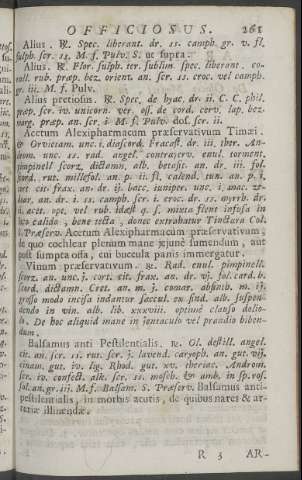 OFFICIOSUS. 261
Alius. ℞. Spec. liberant. dr. ss. camph. gr. v. fl.
sulph. scr. M. f. Pulv. S. ut supra.
Alius. ℞. Flor. sulph. ter. sublim. spec. liberant. co-
rall. rub. præp. bez. orient. an. scr. ss. croc. vel camph.
gr. iii. M. f. Pulv.
Alius pretiosus. ℞. Spec. de hyac. dr. ii. C. C. phil.
præp. scr. iv. unicorn. ver. oss. de cord. cerv. lap. bez.
marg. præp. an. scr. i. M. f. Pulv. dos. scr. ii.
Acetum Alexipharmacum præservativum Timæi.
℞ Orvietam. unc. i. diascord. Fracast. dr. iii. ther. An-
drom. unc. ss. rad. angel. contrayerv. enul. torment.
pimpinell scorz. dictamn. alb. petasit. an. dr. iii. fol.
scord. rut. millefol. an. p. ii. fl. calend. tun. an. p. i.
cort cit. frax. an. dr. ij. bacc. juniper. unc. i. mac. ze-
an. dr. i. ss. camph. scr. i. croc. dr. ss. myrrh. dr.
i. aceti. opt. vel rub. idæi q. s. mixta stent infusa in
loco calido, bene tecta, donec extrahatur Tinctura Col.
S. Præserv. Acetum Alexipharmacum præservativum,
de quo cochlear plenum mane jejune sumendum, aut
post sumpta ossa, cui buccula panis immergatur.
Vinum præservativum. ℞. Rad. enul. pimpinell.
scorz. an. unc. j. cort. cit. frax. an. dr. vj. fol. card. b.
scord. dictamn. Cret. an. m. j. comar. absinth. m. ij.
grosso modo incisa indantur saccul. ex sind. alb. suspen-
dendo in vin. alb. lib. xxxviii. optime clauso dolio-
lo. De hoc aliquid mane in jentaculo vel prandio biben-
dum.
Balsamus anti Pestilentialis. ℞. Ol. destill. angel.
cit. an. scr. ss. rut. scr. j. lavend. caryoph. an. gut. vij.
cinam. gut. iv. lig. Rhod. gut. xv. theriac. Androm.
scr. iv. confect. alk. scr. ss. mosch. & amb. in sp. ros.
sol. an. gr. iii. M. f. Balsam. S. Præserv. Balsamus anti-
pestilentialis, in morbis acutis, de quibus nares & ar-
teriæ illinendæ.
R 3 AR-